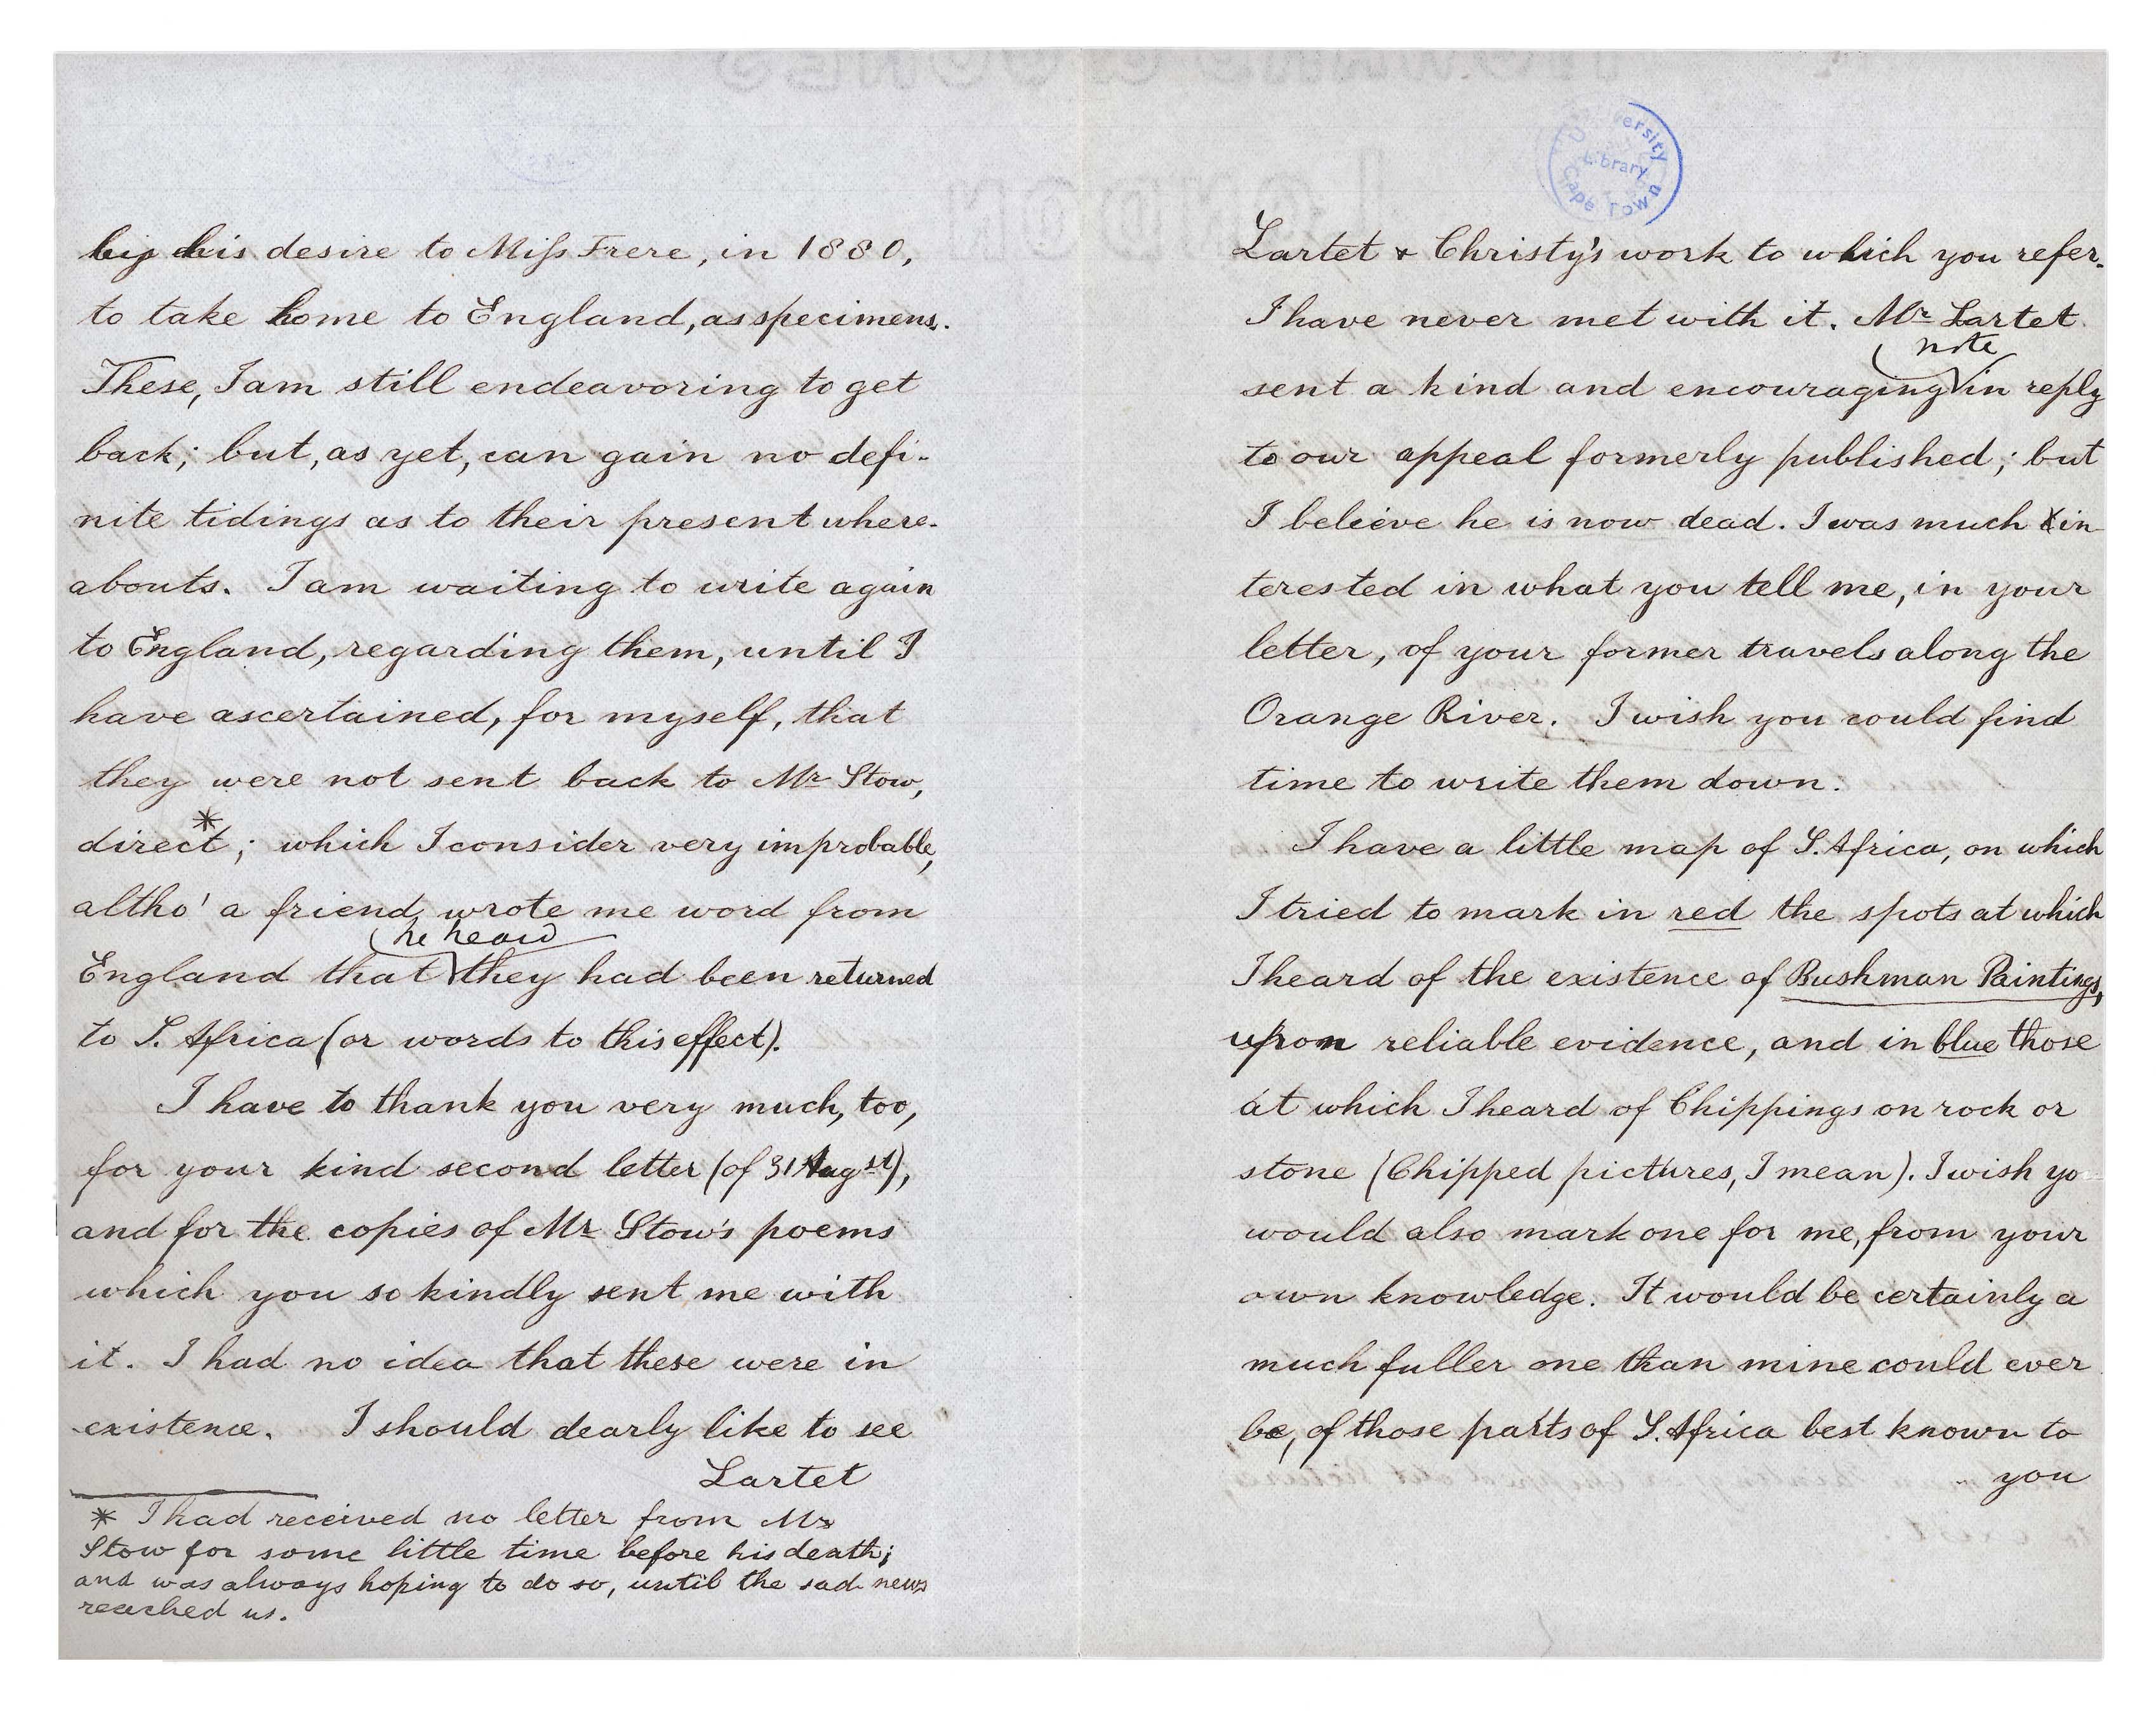 his desire to Miss Frere, in 1880,
to take home to England, as specimens.
These, I am still endeavoring to get
back; but, as yet, can gain no defi-
nite tidings as to their present where-
abouts. I am waiting to write again
to England, regarding them, until I
have ascertained, for myself, that
they were not sent back to Mr Stow,
direct*; which I consider very improbable,
altho' a friend wrote me word from
he heard
England that they had been returned
to S. Africa (or words to this effect).
I have to thank you very much, too,
for your kind second letter (of 31 Augst),
and for the copies of Mr Stow's poems
which you so kindly sent me with
it. I had no idea that these were in
existence. I should dearly like to see
Lartet
* I had received no letter from Mr
Stow for some little time before his death;
and was always hoping to do so, until the sad news
reached us.
University Library Cape Town
Lartet & Christy's work to which you refer.
I have never met with it. Mr Lartet
note
sent a kind and encouraging in reply
to our appeal formerly published; but
I believe he is now dead. I was much in-
terested in what you tell me, in your
letter, of your former travels along the
Orange River. I wish you could find
time to write them down.
I have a little map of S. Africa, on which
I tried to mark in red the spots at which
I heard of the existence of Bushman Paintings,
upon reliable evidence, and in blue those
at which I heard of Chippings on rock or
stone (Chipped pictures, I mean). I wish yo
would also mark one for me, from your
own knowledge. It would be certainly a
much fuller one than mine could ever
be, of those parts of S. Africa best known to
you